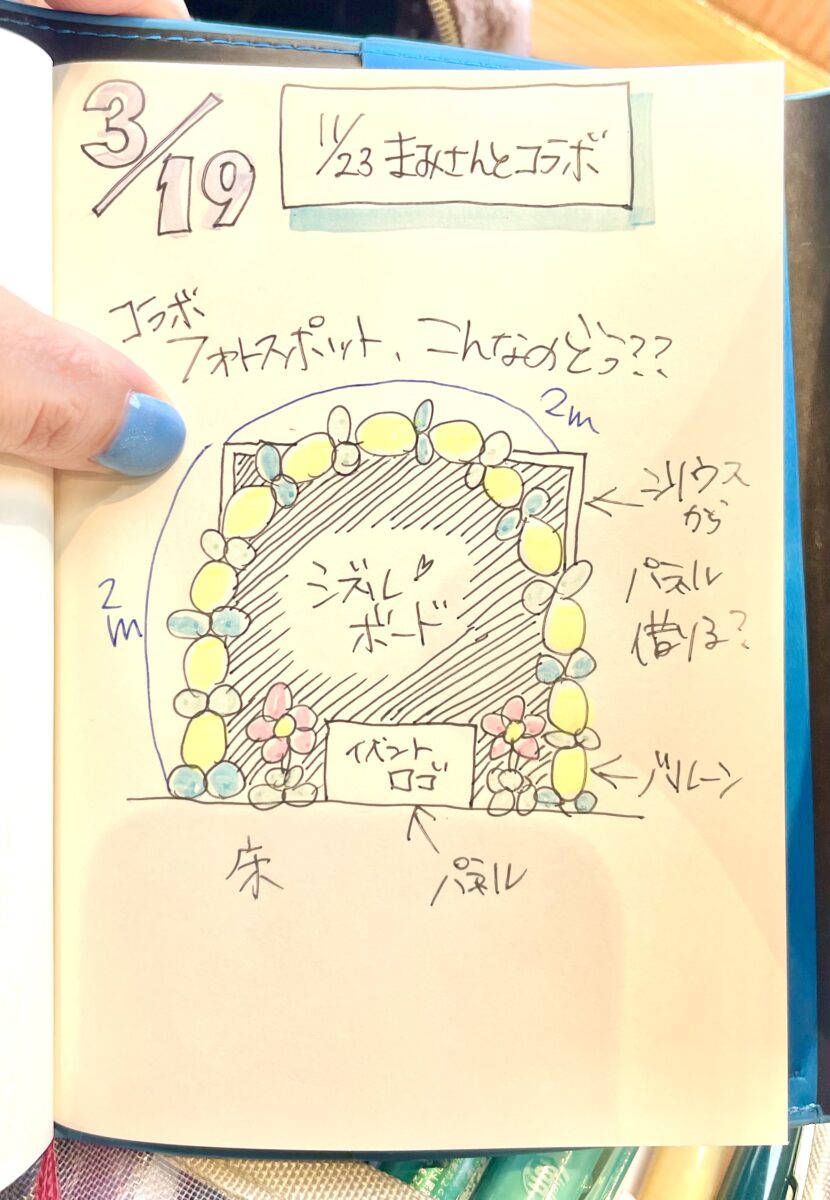 3/19
11/23 まみさんとコラボ
コラボ
フォトスポット、こんなのどう??
2m
シリウス
から
パネル
借りる?
2m
シズル♡
ボード
イベント
ロゴ
バルーン
床
パネル